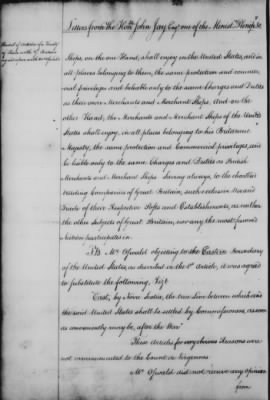 Letters from The Honble John Jay Esqr one of the Minist. Plenipo. &c
Ships, on the one Hand, shall enjoy in the United States, and in
all places belonging to them, the same protection and commer-
cial privileges and be liable only to the same Charges and Duties
as their own Merchants and Merchant Ships, And on the
other Hand, the Merchants and Merchant Ships of the United
States shall enjoy, in all places belonging to his Britannic
Majesty, the same protection and Commercial privileges, and
be liable only to the same Charges and Duties as British
Merchants and Merchant Ships Saving always, to the charter'd
trading Companies of Great Britain, such exclusive Use and
Trade of their Respective Posts and Establishments, as neither
the other Subjects of Great Britain, nor any the most favor'd
Nation participate in.
NB Mr Oswald objecting to the Eastern Boundary
of the United States, as described in the Article, it was agreed
to substitute the following, Vizt
East, by Nova Scotia, the true Line between which and
the said United States shall be settled by Commissioners, as soon
as conveniently may be, after the War
These Articles for very obvious Reasons were
not communicated to the Count de Vergennes
Mr Oswald did not receive any opinion
from